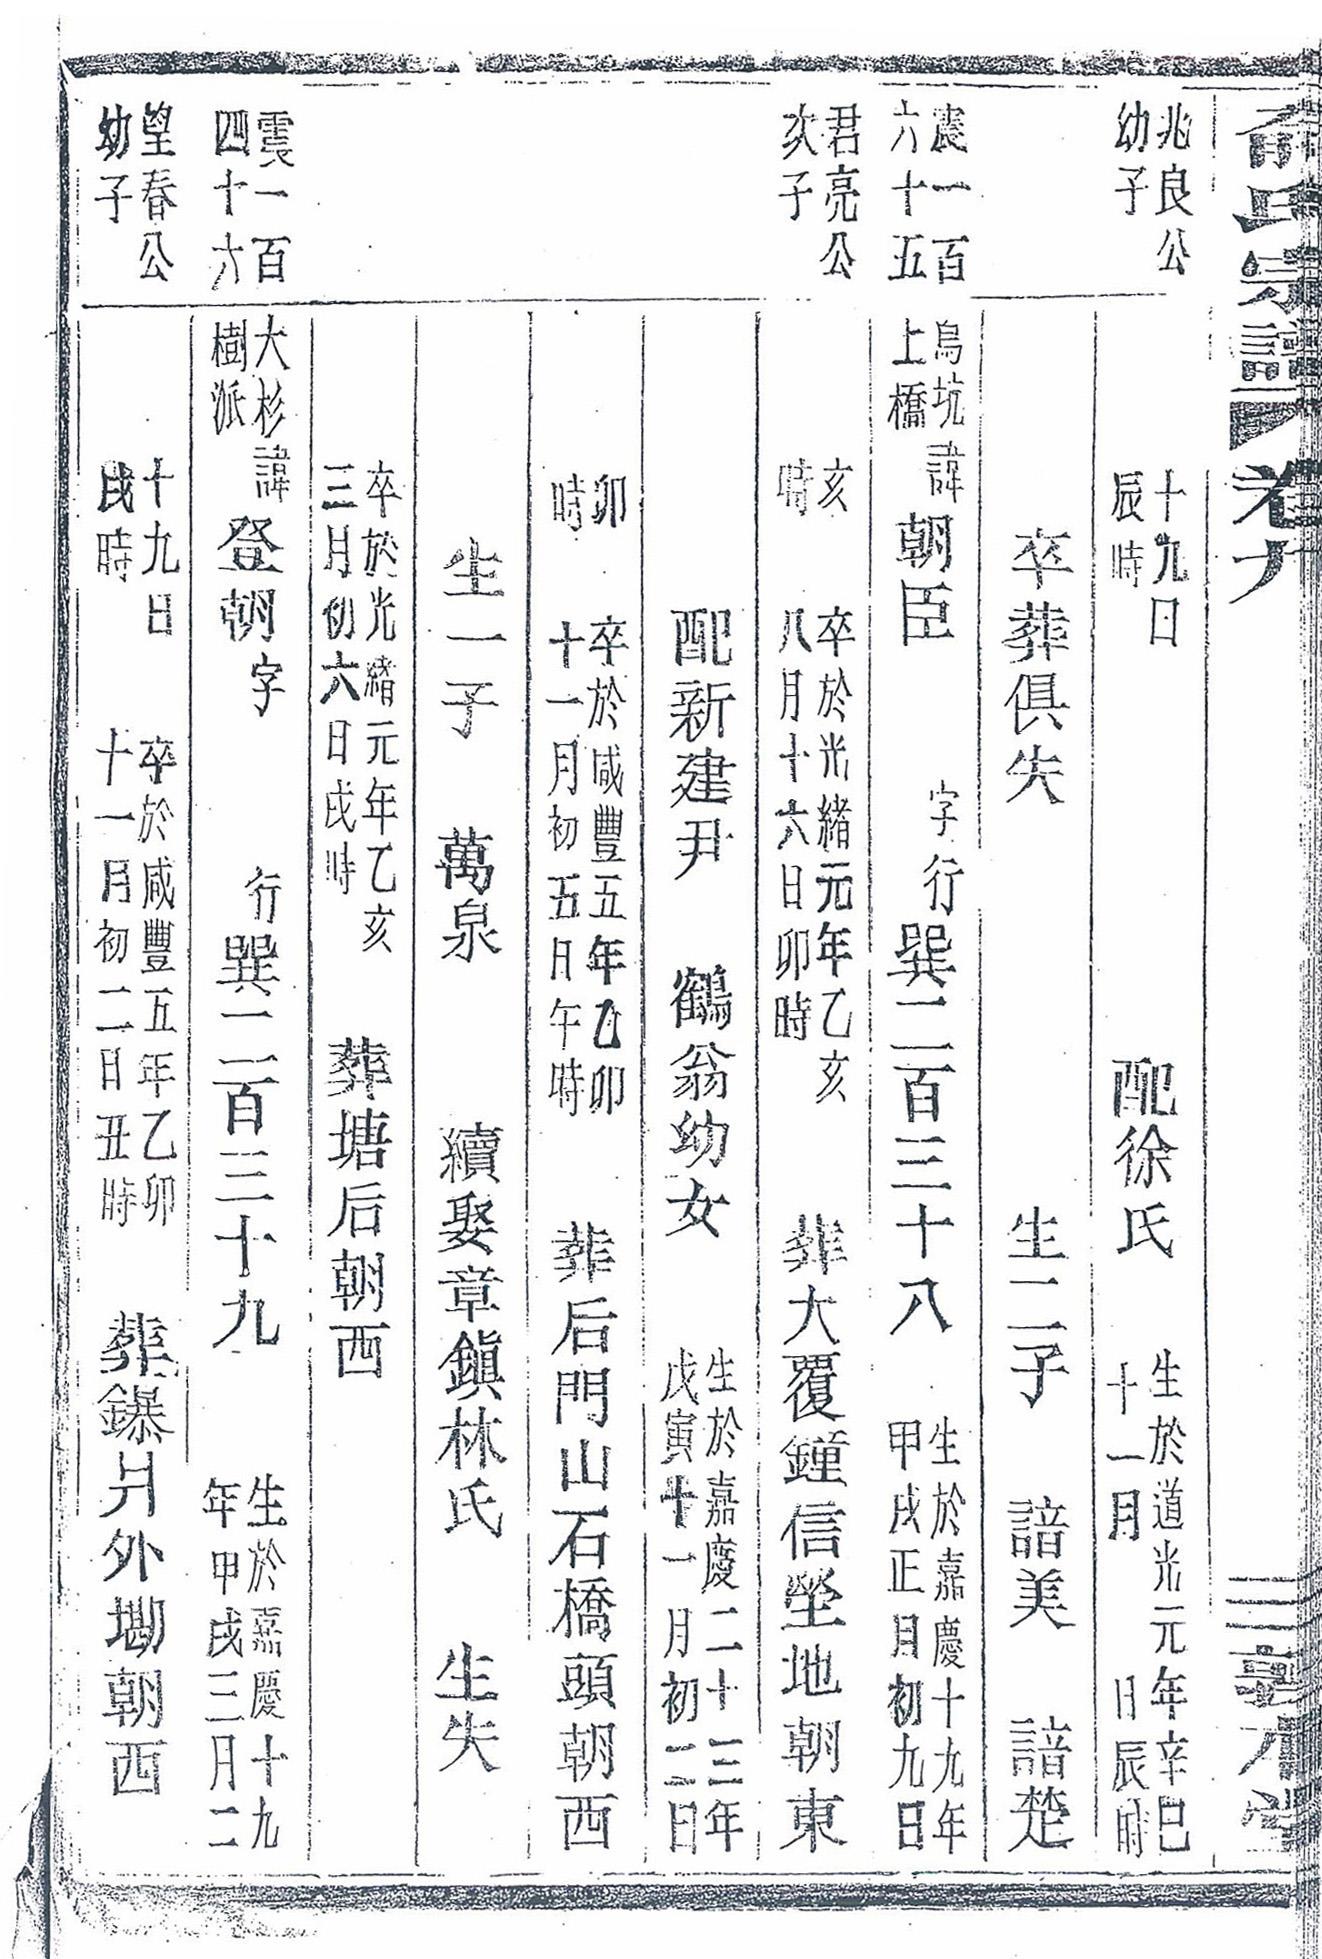 俞氏宗譜 卷九 三 敦本堂
兆良公幼子
十九日辰時 配徐氏 生於道光元年辛巳十一月 日辰時
卒葬俱失 生二子 諳美 諳楚
震一百六十五 烏坑上橋 諱朝臣 字 行巽二百三十八 生於嘉慶十九年甲戌正月初九日
君亮公次子
亥時 卒於光緒元年乙亥八月十六日卯時 葬大覆鐘信塋地朝東
配新建尹 鶴翁幼女 生於嘉慶二十三年戊寅十一月初二日
卯時 卒於咸豐五年乙卯十一月初五日午時 葬后門山石橋頭朝西
生一子 萬泉 續娶章鎭林氏 生失
卒於光緒元年乙亥三月初六日戌時 葬塘后朝西
震一百四十六 大杉樹派 諱登朝 字 行巽二百三十九 生於嘉慶十九年甲戌三月二
望春公幼子
十九日戌時 卒於咸豐五年乙卯十一月初二日丑時 葬鑤爿外坳朝西